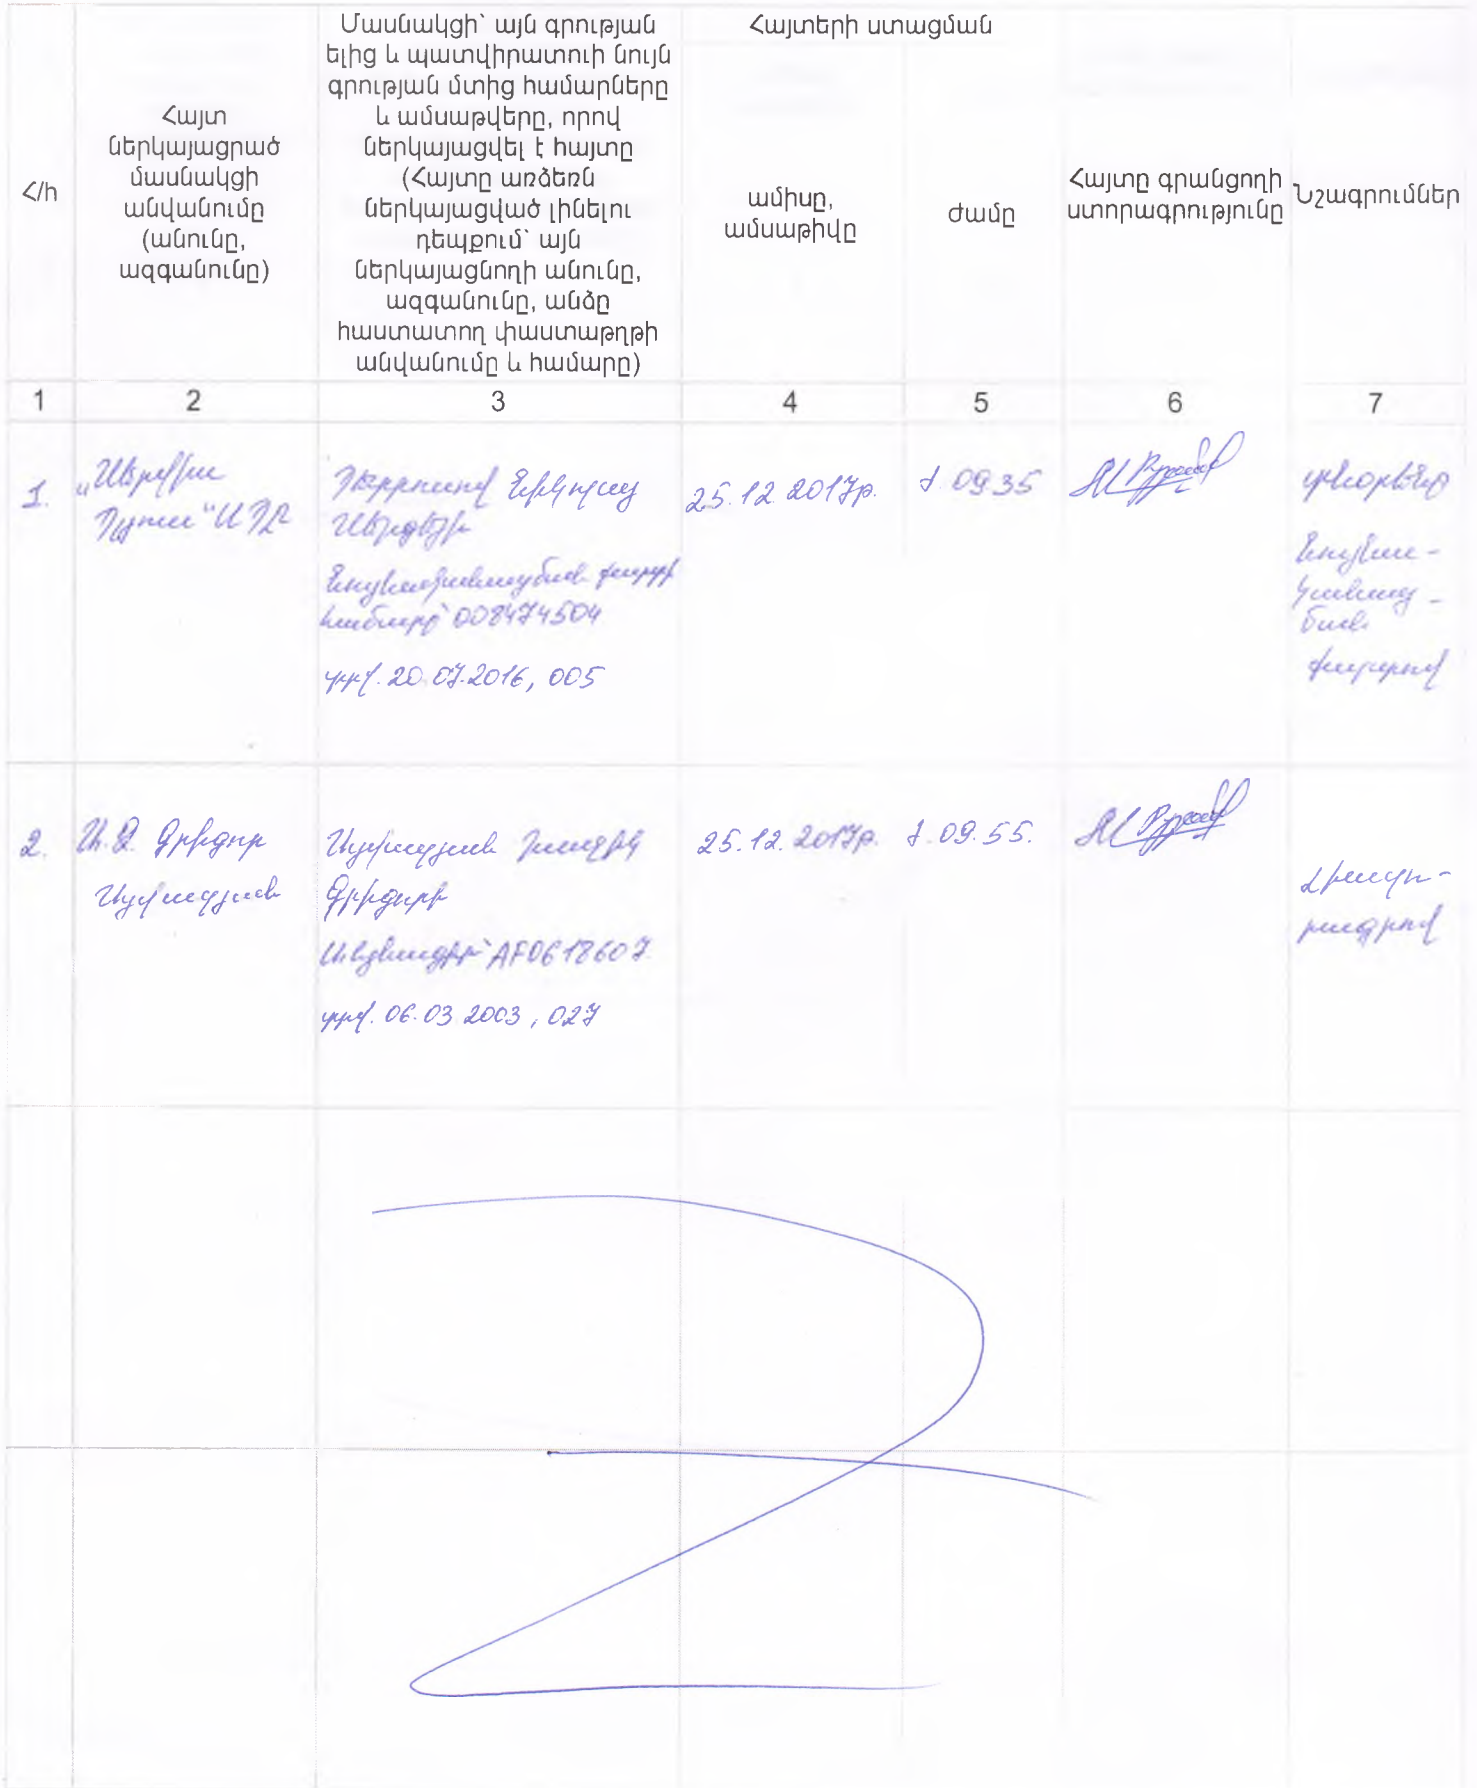 Հ/հ
Հայտ
ներկայացրած
մասնակցի
անվանումը
(անունը,
ազգանունը)
Մասնակցի՝ այն գրության
ելից և պատվիրատուի նույն
գրության մտից համարները
և ամսաթվերը, որով
ներկայացվել է հայտը
(Հայտը առձեռն
ներկայացված լինելու
դեպքում՝ այն
ներկայացնողի անունը,
ազգանունը, անձը
հաստատող փաստաթղթի
անվանումը և համարը)
Հայտերի ստացման
ամիսը,
ամսաթիվը
ժամը
Հայտը գրանցողի
ստորագրությունը
Նշագրումներ
1 2 3 4 5 6 7
1.
Նիկոլայ
Սերգեյի
Նույնականացման քարտի
համարը՝ 008474504
տրվ. 20.07.2016, 005
25.12.2017թ.
ժ. 09.35
տնօրենը
Նույնա-
կանաց-
ման
քարտով
2.
Ա.Ձ. Գրիգոր
Այվազյան
Այվազյան Խաչիկ
Գրիգորի
Անձնագիր՝ AF0618607
տրվ. 06.03.2003, 027
25.12.2017թ.
ժ. 09.55.
Լիազո-
րագրով